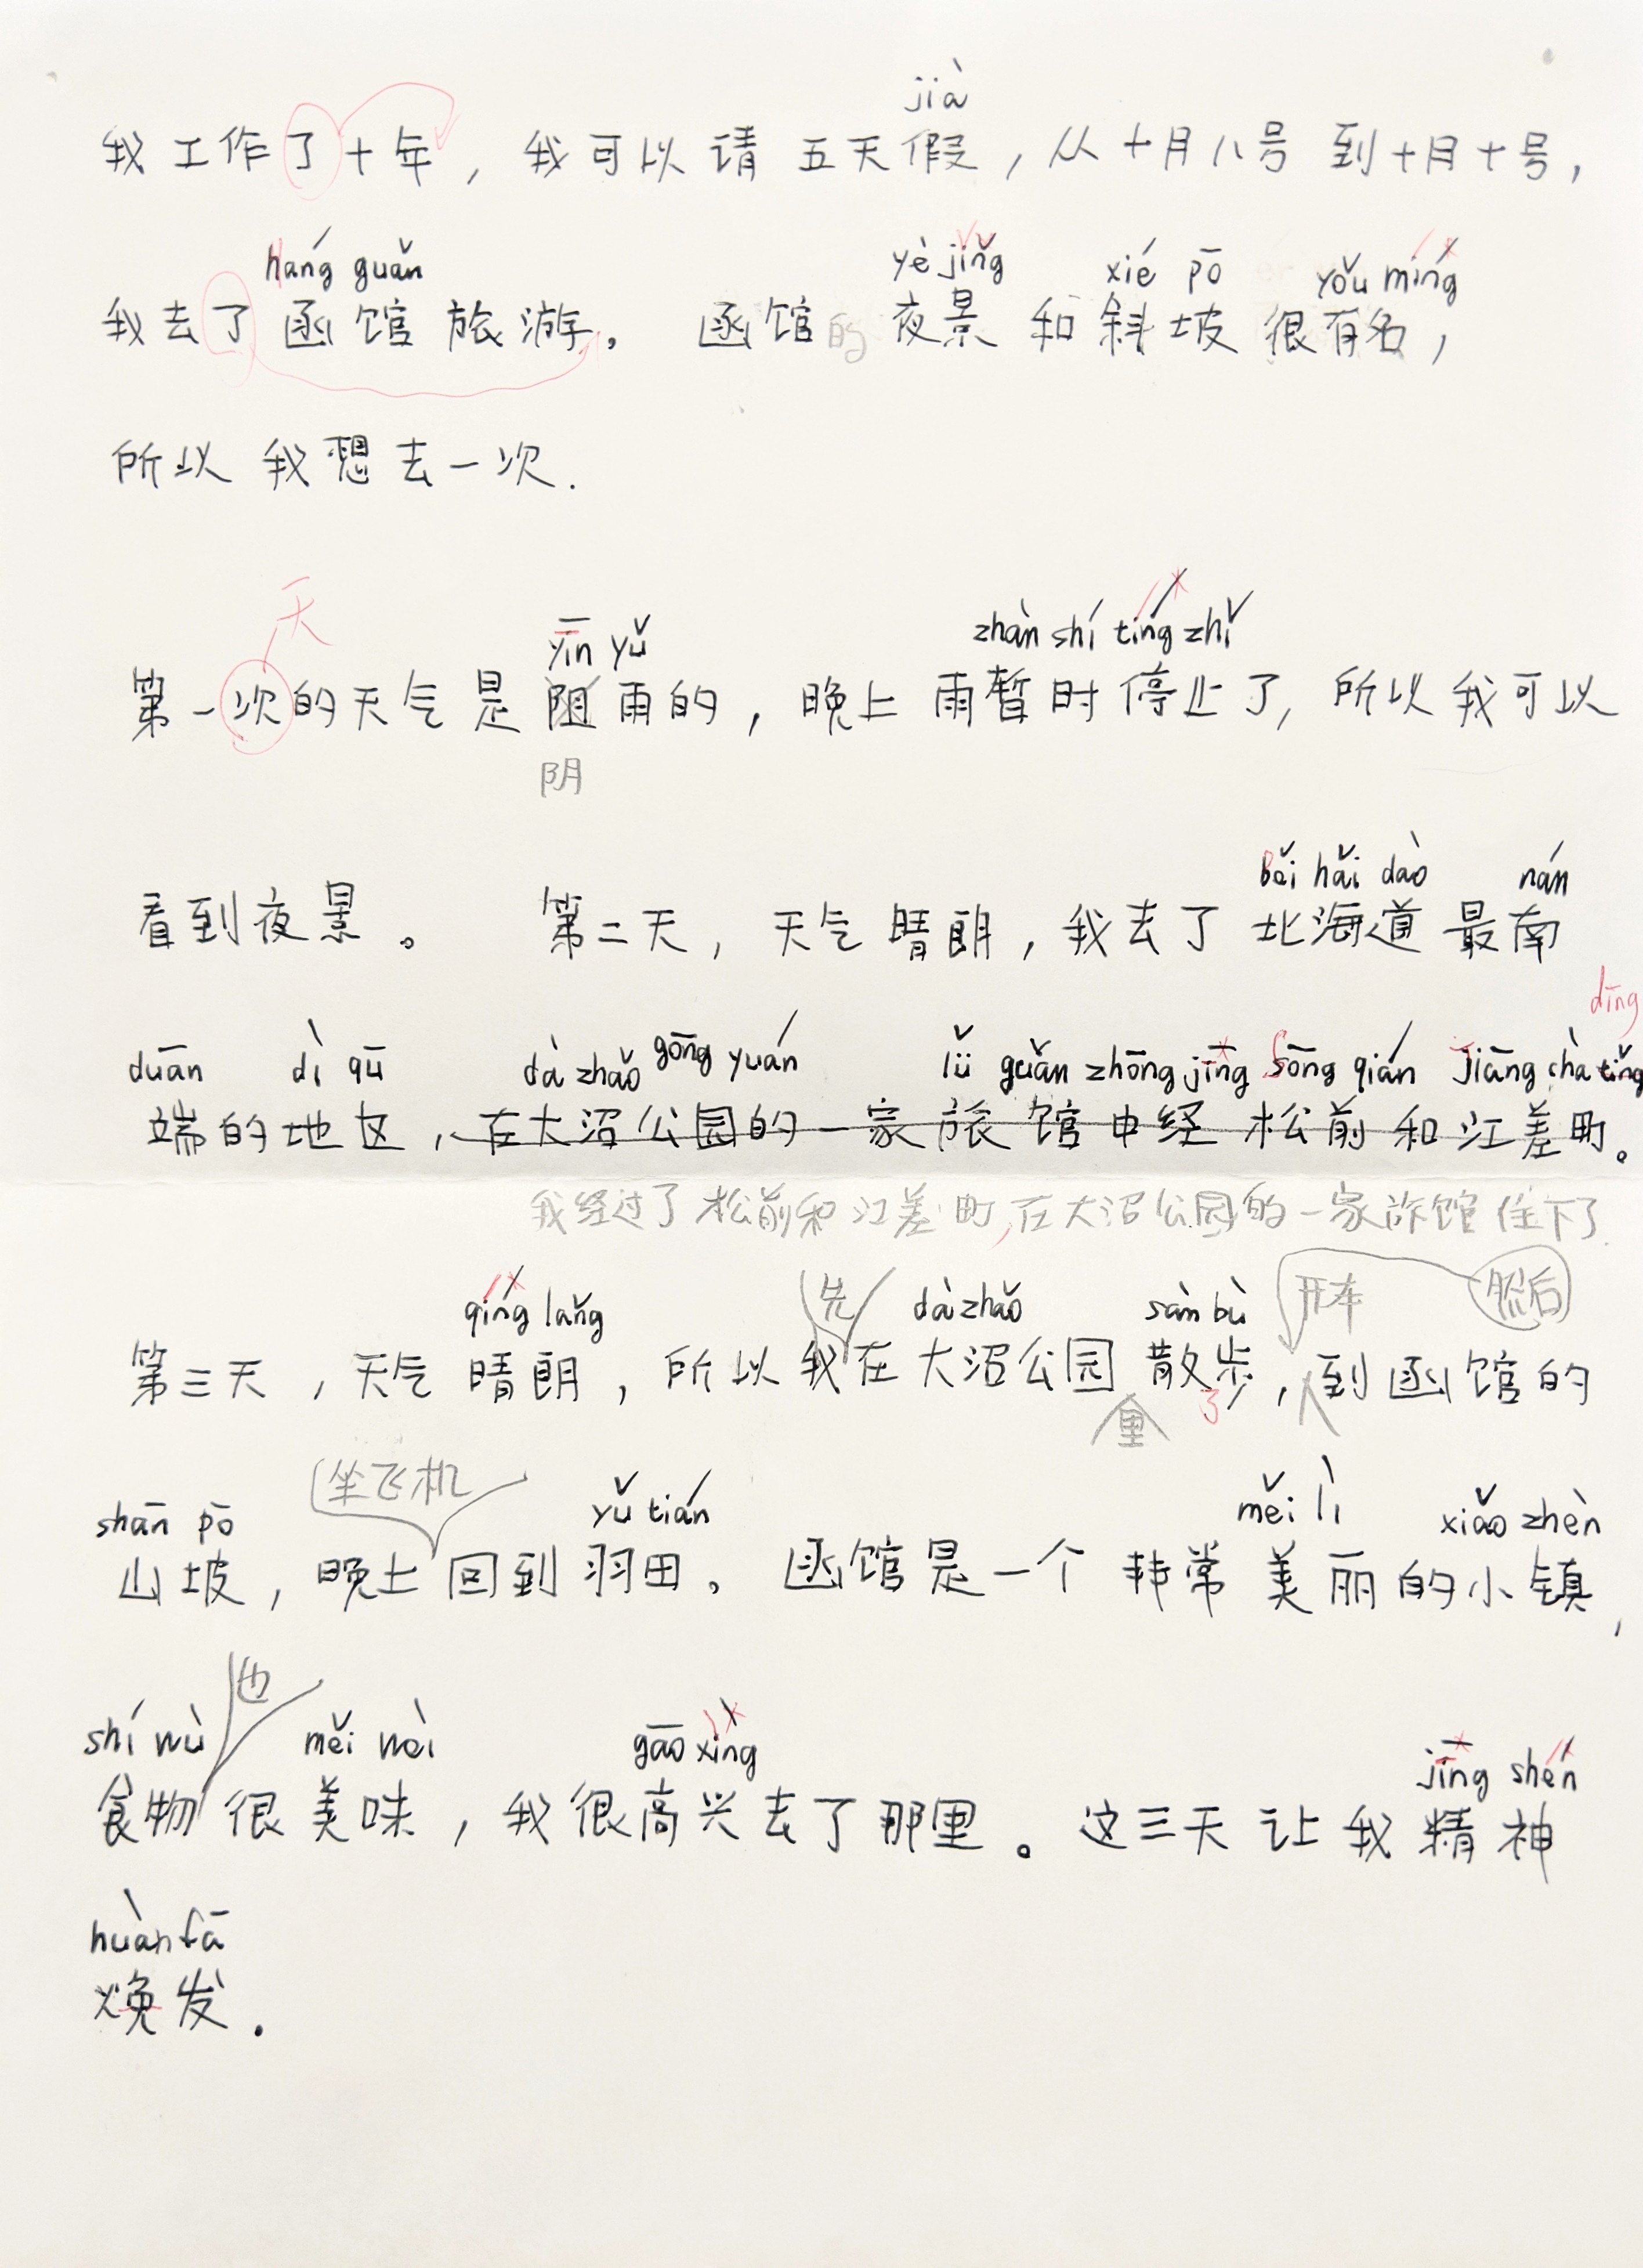 jià
我工作了十年，我可以请五天假，从十月八号到十月十号，
háng guǎn yè jǐng xié pō yǒu míng
我去了函馆旅游。函馆的夜景和斜坡很有名，
所以我想去一次.
天
yīn yǔ zhàn shí tíng zhǐ
第一次的天气是阻雨的，晚上雨暂时停止了，所以我可以
阴
běi hǎi dào nán
看到夜景。 第二天，天气晴朗，我去了北海道最南
dīng
duān dì qū dà zhǎo gōng yuán lǚ guǎn zhōng jīng sōng qián jiāng chà tǐng
端的地区，在大沼公园的一家旅馆中经松前和江差町。
我经过了松前和江差町,在大沼公园的一家旅馆住下了.
qíng lǎng 先 dà zhǎo sàn bù 开车 然后
第三天，天气晴朗，所以我在大沼公园散步，到函馆的
里 了
shān pō 坐飞机 yǔ tián měi lì xiǎo zhèn
山坡，晚上回到羽田。函馆是一个非常美丽的小镇，
也
shí wù měi wèi gāo xìng jīng shén
食物很美味，我很高兴去了那里。这三天让我精神
huàn fā
焕发.